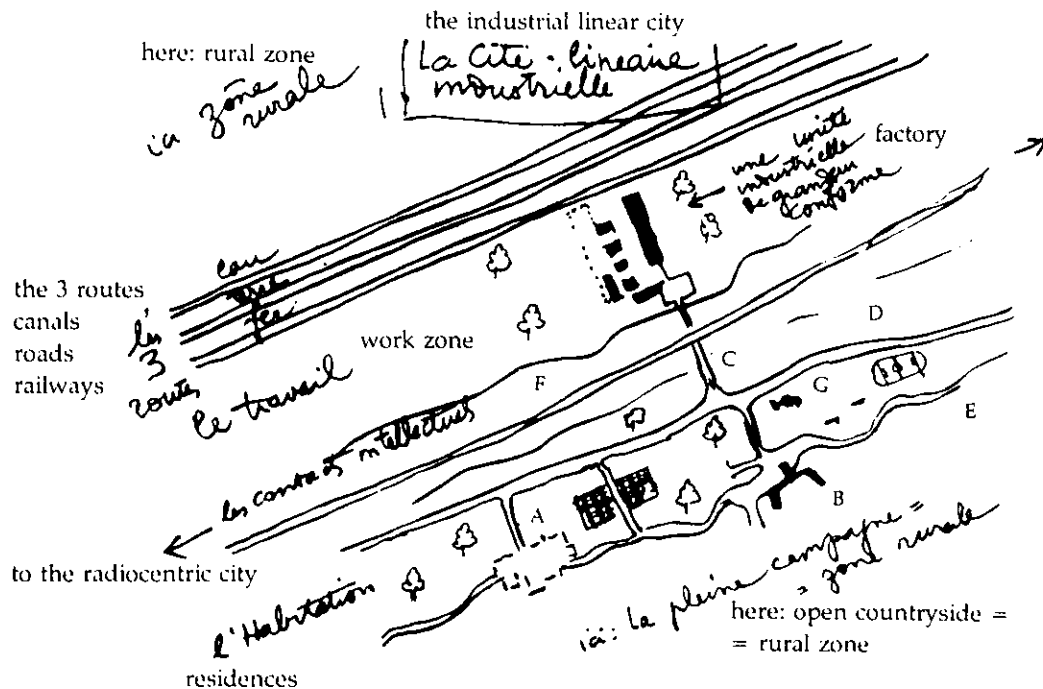 the industrial linear city
here: rural zone
La Cité linéaire
industrielle
ici zône
rurale
factory
une unité
industrielle
de grandeur
conforme
the 3 routes
canals
roads
railways
eau
terre
fer
les
3
routes
work zone
le travail
D
C
F
G
E
les contacts intellectuels
A
B
to the radiocentric city
l'Habitation
residences
ici: la pleine campagne =
= zone rurale
here: open countryside =
= rural zone